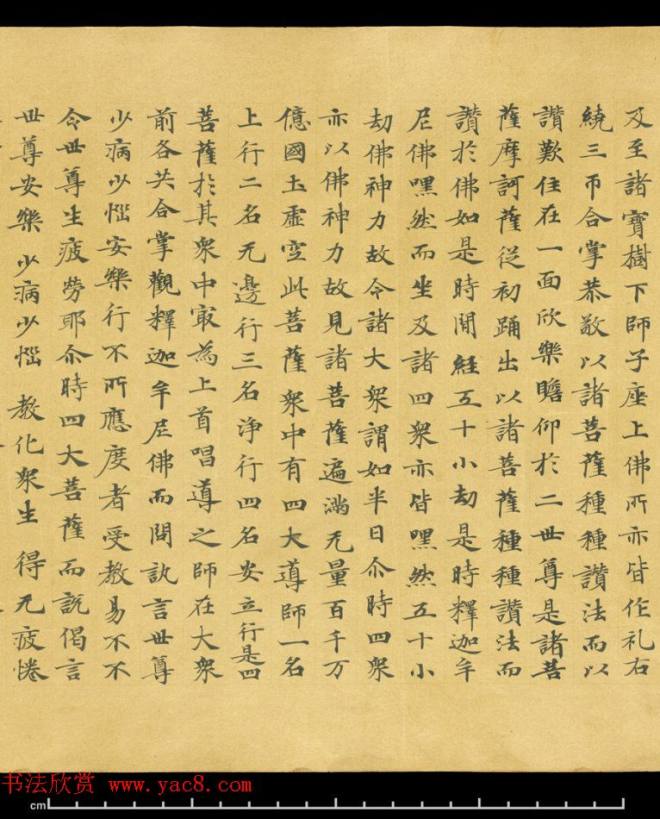 及至諸寶樹下師子座上佛所亦皆作礼右
繞三帀合掌恭敬以諸菩薩種種讚法而以
讚歎住在一面欣樂瞻仰於二世尊是諸菩
薩摩訶薩從初踊出以諸菩薩種種讚法而
讚於佛如是時間經五十小劫是時釋迦牟
尼佛嘿然而坐及諸四衆亦皆嘿然五十小
劫佛神力故令諸大衆謂如半日尒時四衆
亦以佛神力故見諸菩薩遍滿无量百千万
億國土虛空此菩薩衆中有四大導師一名
上行二名无邊行三名淨行四名安立行是四
菩薩於其衆中冣為上首唱導之師在大衆
前各共合掌觀釋迦牟尼佛而問訊言世尊
少病少惱安樂行不所應度者受教易不不
令世尊生疲勞耶尒時四大菩薩而說偈言
世尊安樂 少病少惱 教化衆生 得无疲惓
书法欣赏 www.yac8.com
cm